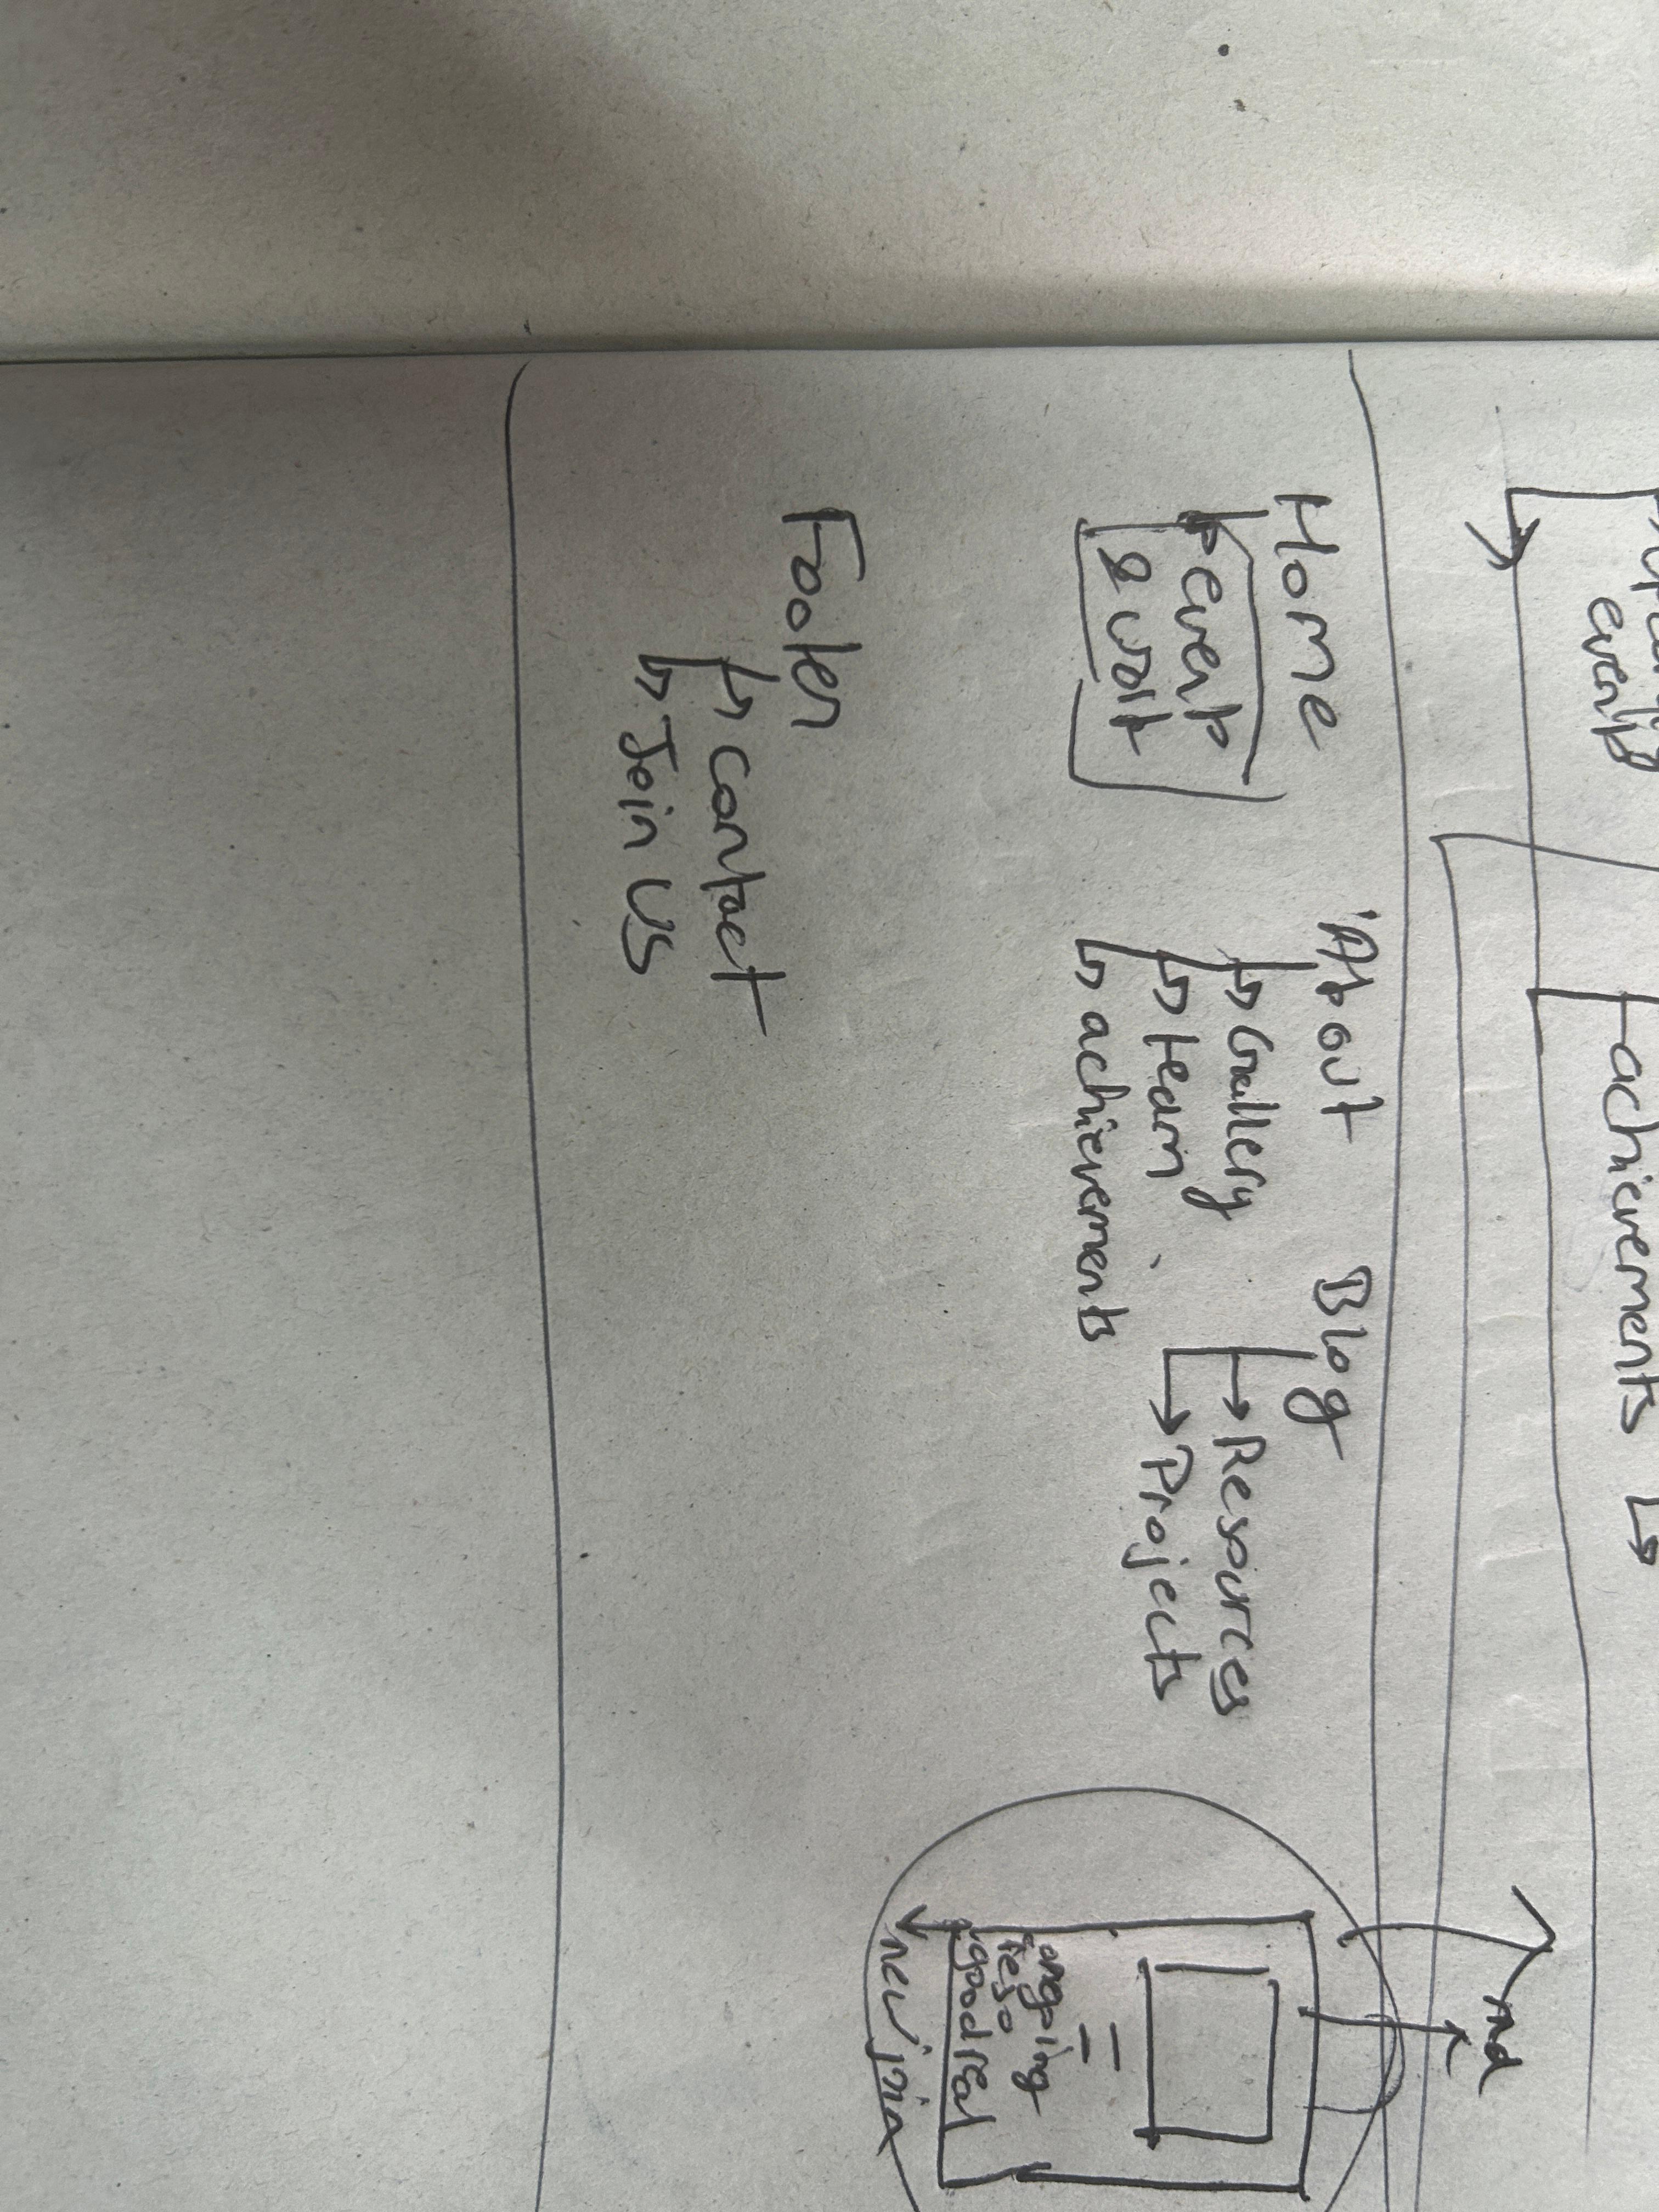 event
achievements
md
Home
About
Blog
event
&
Gallery
team
achievements
Resources
Projects
ongoing
reso
good real
new join
Footer
contact
Join US